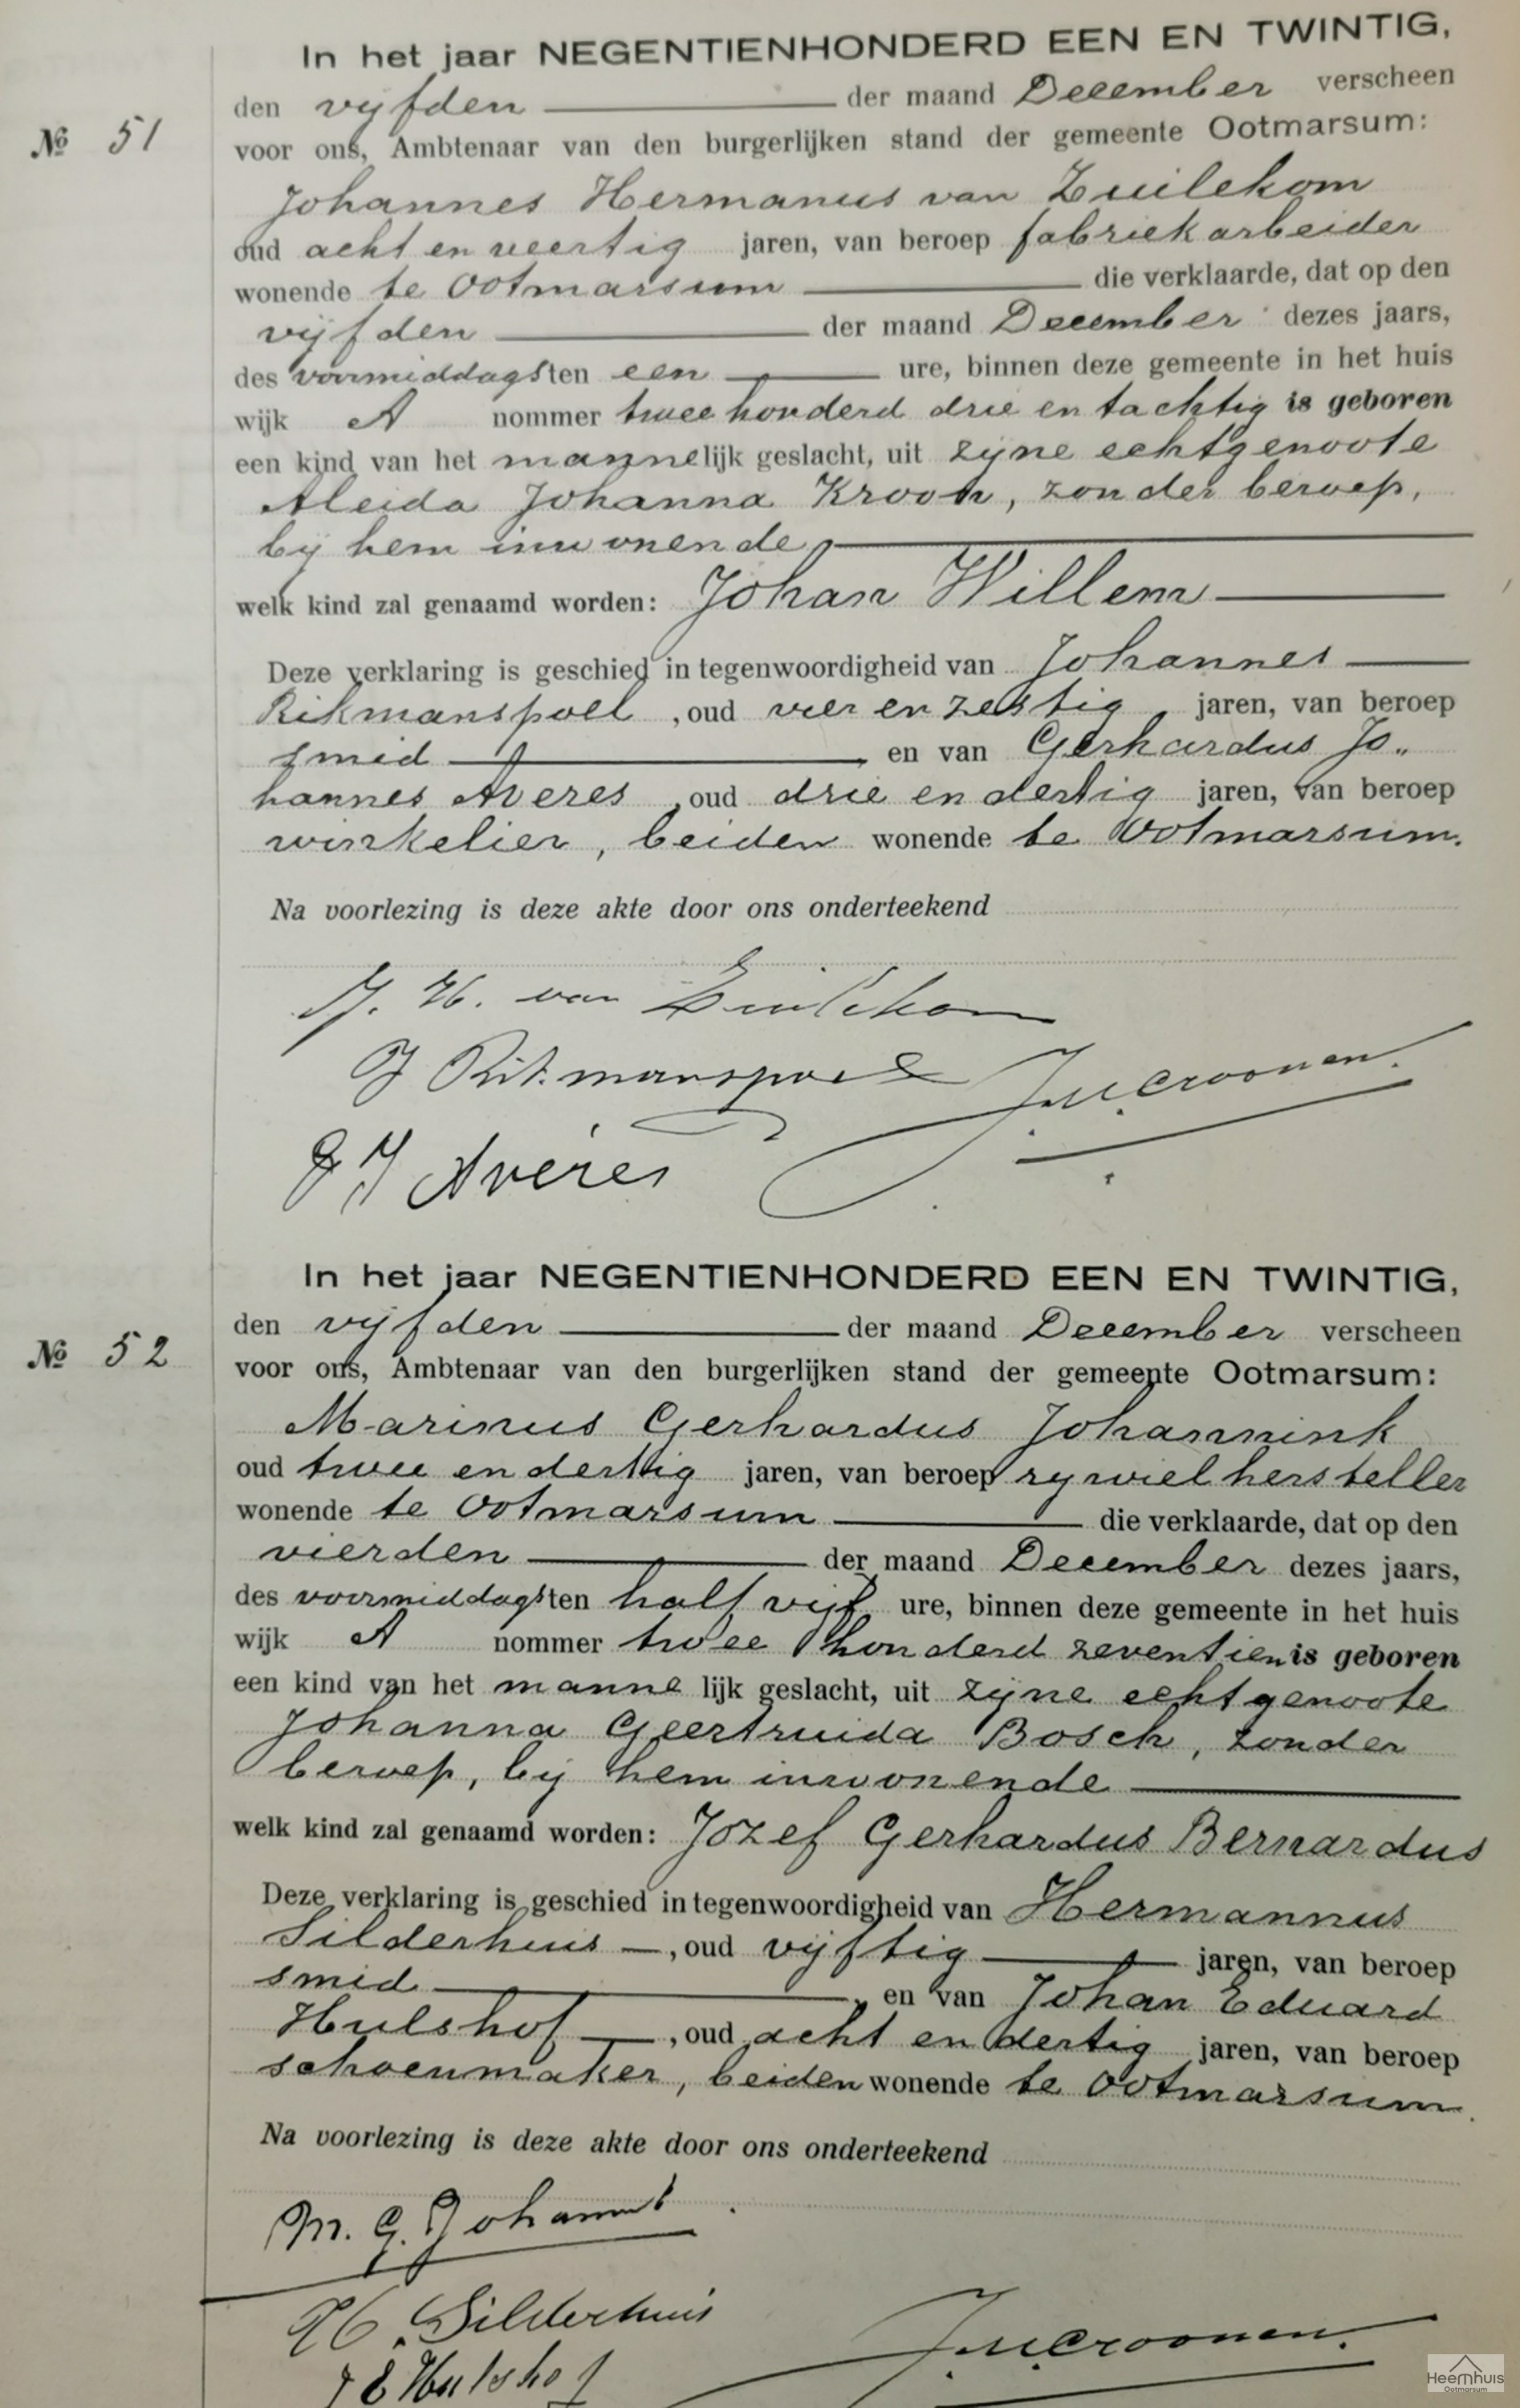 In het jaar NEGENTIENHONDERD EEN EN TWINTIG,
den vijfden der maand December verscheen
№ 51
voor ons, Ambtenaar van den burgerlijken stand der gemeente Ootmarsum:
Johannes Hermanus van Zuilekom
oud acht en veertig jaren, van beroep fabriekarbeider
wonende te Ootmarsum die verklaarde, dat op den
vijfden der maand December dezes jaars,
des voormiddags ten een ure, binnen deze gemeente in het huis
wijk A nommer twee honderd drie en tachtig is geboren
een kind van het mannelijk geslacht, uit zijne echtgenoote
Aleida Johanna Kroon, zonder beroep,
bij hem inwonende,
welk kind zal genaamd worden: Johan Willem
Deze verklaring is geschied in tegenwoordigheid van Johannes
Rikmanspoel, oud vier en zestig jaren, van beroep
smid, en van Gerhardus Jo„
hannes Averes, oud drie en dertig jaren, van beroep
winkelier, beiden wonende te Ootmarsum.
Na voorlezing is deze akte door ons onderteekend
J. H. van Zuilekom
J Rikmanspoel
J.M. Croonen.
G J Averes
In het jaar NEGENTIENHONDERD EEN EN TWINTIG,
den vijfden der maand December verscheen
№ 52
voor ons, Ambtenaar van den burgerlijken stand der gemeente Ootmarsum:
Marinus Gerhardus Johannink
oud twee en dertig jaren, van beroep rywielhersteller
wonende te Ootmarsum die verklaarde, dat op den
vierden der maand December dezes jaars,
des voormiddags ten half vijf ure, binnen deze gemeente in het huis
wijk A nommer twee honderd zeventien is geboren
een kind van het mannelijk geslacht, uit zijne echtgenoote
Johanna Geertruida Bosch, zonder
beroep, bij hem inwonende
welk kind zal genaamd worden: Jozef Gerhardus Bernardus
Deze verklaring is geschied in tegenwoordigheid van Hermannus
Silderhuis, oud vijftig jaren, van beroep
smid, en van Johan Eduard
Hulshof, oud acht en dertig jaren, van beroep
schoenmaker, beiden wonende te Ootmarsum.
Na voorlezing is deze akte door ons onderteekend
M. G. Johannink
H. Silderhuis
J.M. Croonen.
J E Hulshof
Heemhuis
Ootmarsum